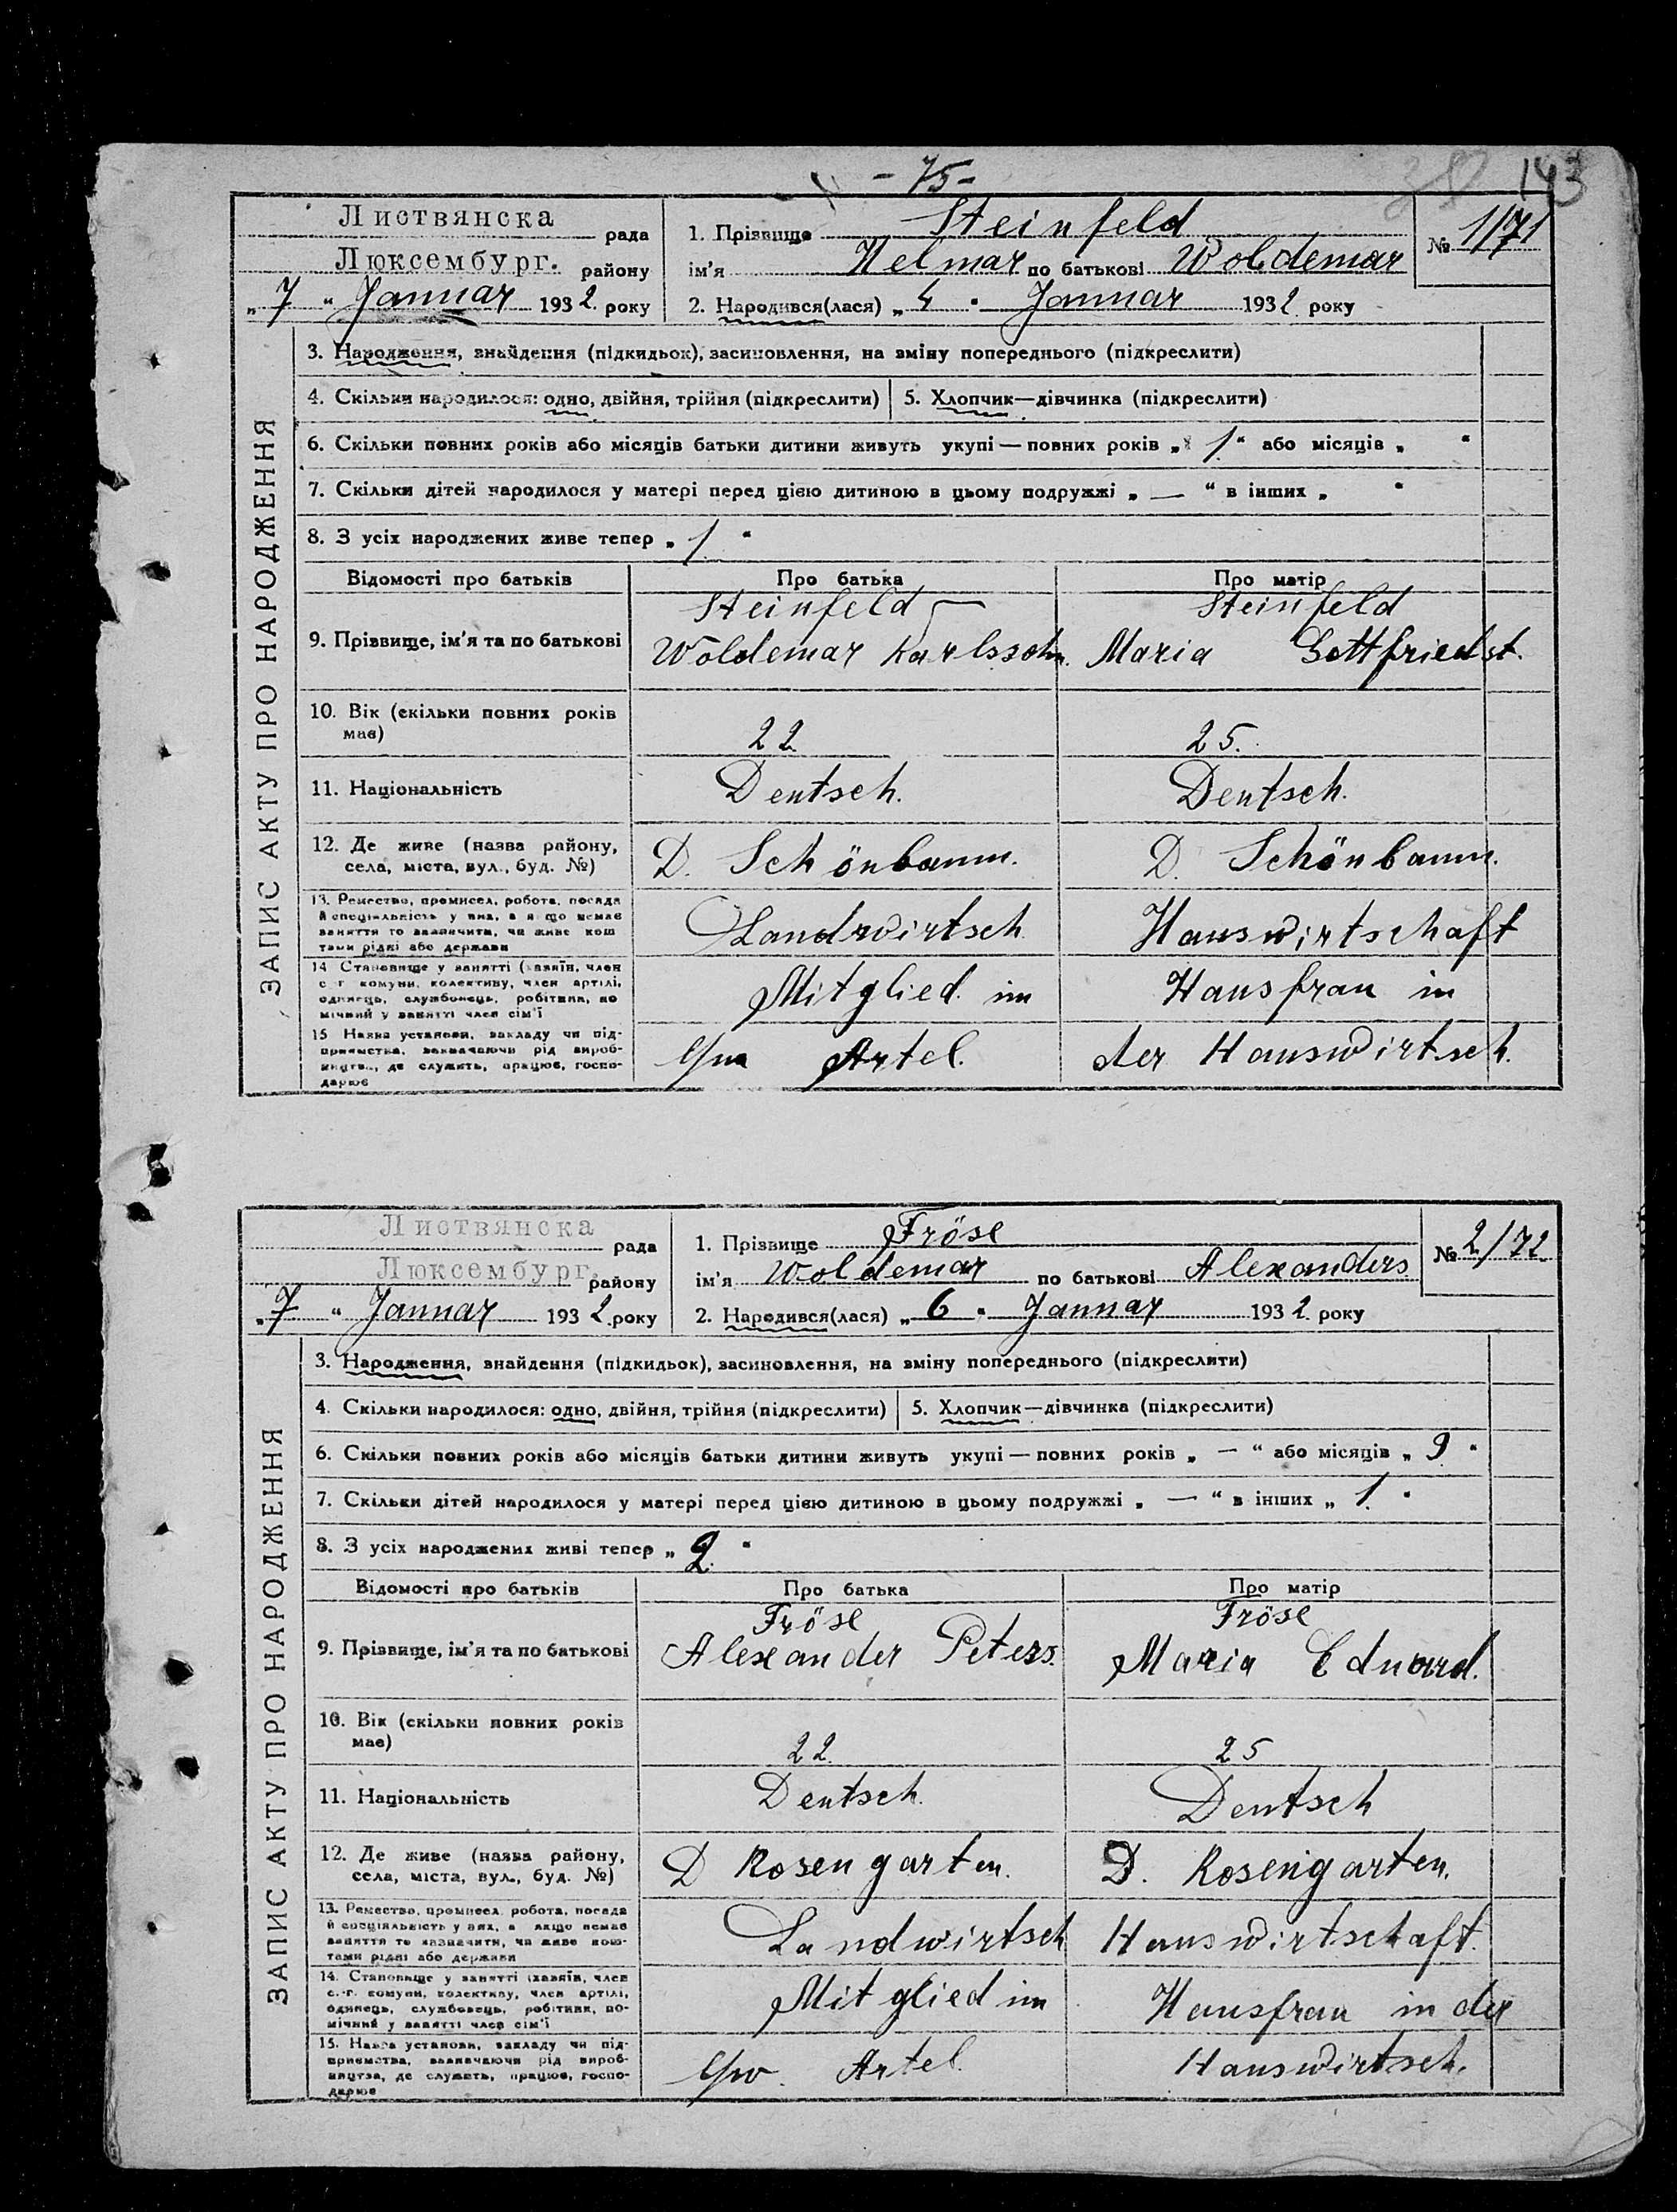 - 75 -
143
Листвянска рада
Люксембург. району
„ 7 “ Januar 1932 року
1. Прізвище Steinfeld
ім'я Helmar по батькові Woldemar
2. Народився(лася) „ 4 “ Januar 1932 року
№ 1/71
ЗАПИС АКТУ ПРО НАРОДЖЕННЯ
3. Народження, знайдення (підкидьок), засиновлення, на зміну попереднього (підкреслити)
4. Скільки народилося: одно, двійня, трійня (підкреслити) 5. Хлопчик—дівчинка (підкреслити)
6. Скільки повних років або місяців батьки дитини живуть укупі — повних років „ 1. “ або місяців „ “
7. Скільки дітей народилося у матері перед цією дитиною в цьому подружжі „ — “ в інших „ “
8. З усіх народжених живе тепер „ 1. “
Відомості про батьків Про батька Про матір
9. Прізвище, ім'я та по батькові
Steinfeld
Woldemar Karlssohn.
Steinfeld
Maria Gottfriedst.
10. Вік (скільки повних років має)
22
25.
11. Національність
Deutsch.
Deutsch.
12. Де живе (назва району,
села, міста, вул., буд. №)
D. Schönbaum.
D. Schönbaum.
13. Ремество, промисел, робота, посада
й спеціяльність у них, а якщо немає
заняття то зазначити, чи живе кош
тами рідні або держави
Landwirtsch.
Hauswirtschaft
14 Становище у занятті (хазяїн, член
с.-г комуни, колективу, член артілі,
одинець, службовець, робітник, по
мічний у занятті член сім'ї
Mitglied im
Hausfrau in
15 Назва установи, закладу чи під-
приємства, зазначаючи рід вироб-
ництва, де служить, працює, госпо-
дарює
Artel.
der Hauswirtsch.
Листвянска рада
Люксембург. району
„ 7 “ Januar 1932 року
1. Прізвище Fröse
ім'я Woldemar по батькові Alexanders
2. Народився(лася) „ 6 “ Januar 1932 року
№ 2/72
ЗАПИС АКТУ ПРО НАРОДЖЕННЯ
3. Народження, знайдення (підкидьок), засиновлення, на зміну попереднього (підкреслити)
4. Скільки народилося: одно, двійня, трійня (підкреслити) 5. Хлопчик—дівчинка (підкреслити)
6. Скільки повних років або місяців батьки дитини живуть укупі — повних років „ — “ або місяців „ 9 “
7. Скільки дітей народилося у матері перед цією дитиною в цьому подружжі „ — “ в інших „ 1. “
8. З усіх народжених живі тепер „ 2. “
Відомості про батьків Про батька Про матір
9. Прізвище, ім'я та по батькові
Fröse
Alexander Peters.
Fröse
Maria Eduard.
10. Вік (скільки повних років має)
22.
25
11. Національність
Deutsch.
Deutsch
12. Де живе (назва району,
села, міста, вул., буд. №)
D Rosengarten.
D. Rosengarten.
13. Ремество, промисел, робота, посада
й спеціяльність у них, а якщо немає
заняття то зазначити, чи живе кош-
тами рідні або держави
Landwirtsch
Hauswirtschaft.
14. Становище у занятті (хазяїн, член
с.-г. комуни, колективу, член артілі,
одинець, службовець, робітник, по-
мічний у занятті член сім'ї
Mitglied im
Hausfrau in der
15. Назва установи, закладу чи під-
приємства, зазначаючи рід вироб-
ництва, де служить, працює, госпо-
дарює
Artel.
Hauswirtsch.